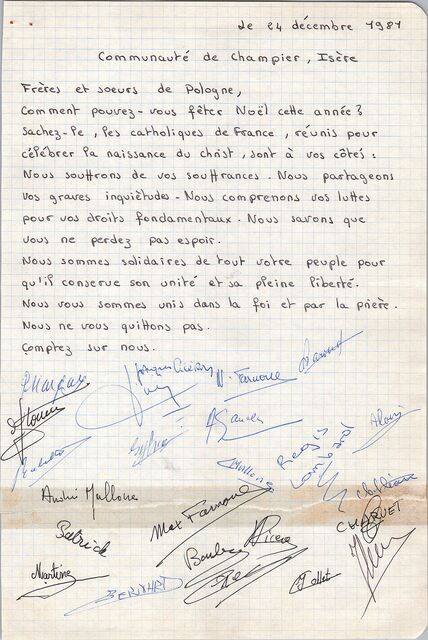 Le 24 décembre 1981
Communauté de Champier, Isère
Frères et soeurs de Pologne,
Comment pouvez-vous fêter Noël cette année?
Sachez-le, les catholiques de France, réunis pour
célébrer la naissance du christ, sont à vos côtés:
Nous souffrons de vos souffrances. Nous partageons
vos graves inquiètudes. Nous comprenons vos luttes
pour vos droits fondamentaux. Nous savons que
vous ne perdez pas espoir.
Nous sommes solidaires de tout votre peuple pour
qu'il conserve son unité et sa pleine liberté.
Nous vous sommes unis dans la foi et par la prière.
Nous ne vous quittons pas.
Comptez sur nous.
Sylvie
Alain
Regis
Lombard
André Mullone
Max Farnoud
CHARVET
Patrick
Martine
BERNARD